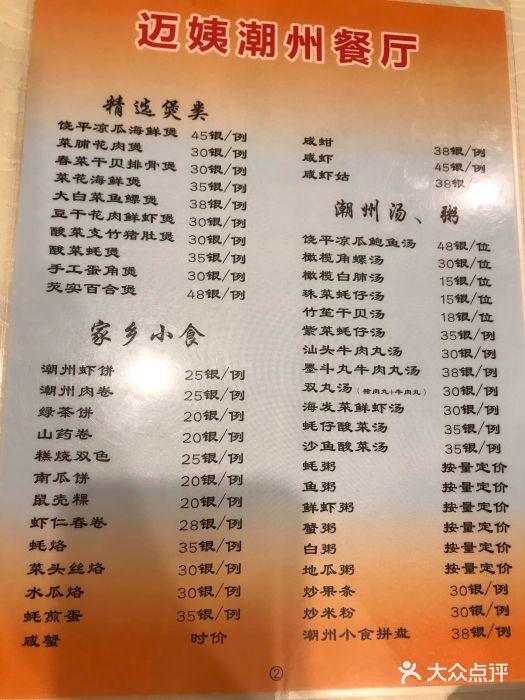 迈姨潮州餐厅
精选煲类
饶平凉瓜海鲜煲 45银/例
菜脯花肉煲 30银/例
春菜干贝排骨煲 30银/例
菜花海鲜煲 35银/例
大白菜鱼鳔煲 38银/例
豆干花肉鲜虾煲 30银/例
酸菜支竹猪肚煲 30银/例
酸菜蚝煲 35银/例
手工蛋角煲 30银/例
芡实百合煲 48银/例
家乡小食
潮州虾饼 25银/例
潮州肉卷 25银/例
绿茶饼 20银/例
山药卷 20银/例
糕烧双色 25银/例
南瓜饼 20银/例
鼠壳粿 20银/例
虾仁春卷 28银/例
蚝烙 35银/例
菜头丝烙 30银/例
水瓜烙 30银/例
蚝煎蛋 35银/例
咸蟹 时价
咸蚶 38银/例
咸虾 45银/例
咸虾姑 38银/例
潮州汤、粥
饶平凉瓜鲍鱼汤 48银/位
橄榄角螺汤 30银/位
橄榄白肺汤 15银/位
珠菜蚝仔汤 15银/位
竹笙干贝汤 18银/位
紫菜蚝仔汤 35银/例
汕头牛肉丸汤 30银/例
墨斗丸牛肉丸汤 38银/例
双丸汤（猪肉丸+牛肉丸） 30银/例
海发菜鲜虾汤 30银/例
蚝仔酸菜汤 35银/例
沙鱼酸菜汤 35银/例
蚝粥 按量定价
鱼粥 按量定价
鲜虾粥 按量定价
蟹粥 按量定价
白粥 按量定价
地瓜粥 按量定价
炒果条 30银/例
炒米粉 30银/例
潮州小食拼盘 38银/例
②
大众点评